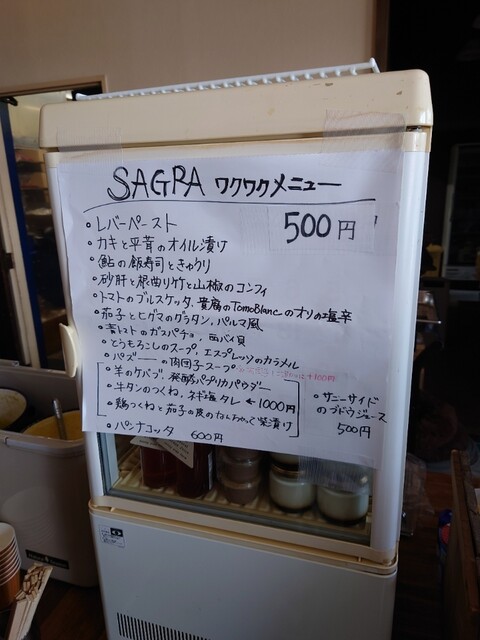 SAGRA ワクワクメニュー
500円
・レバーペースト
・カキと平茸のオイル漬け
・鮎の飯寿司ときゅうり
・砂肝と根曲り竹と山椒のコンフィ
・トマトのブルスケッタ、貴腐のTomoBlancのオリの塩辛
・茄子とヒグマのグラタン、パルマ風
・青トマトのガスパチョ、白バイ貝
・とうもろこしのスープ、エスプレッソのカラメル
・パズーーの肉団子スープ
+100円
・羊のケバブ、発酵パプリカパウダー
・牛タンのつくね、ネギ塩タレ ← 1000円
・鶏つくねと茄子の皮のなんちゃって柴漬け
・パンナコッタ 600円
・サニーサイド
のブドウジュース
500円